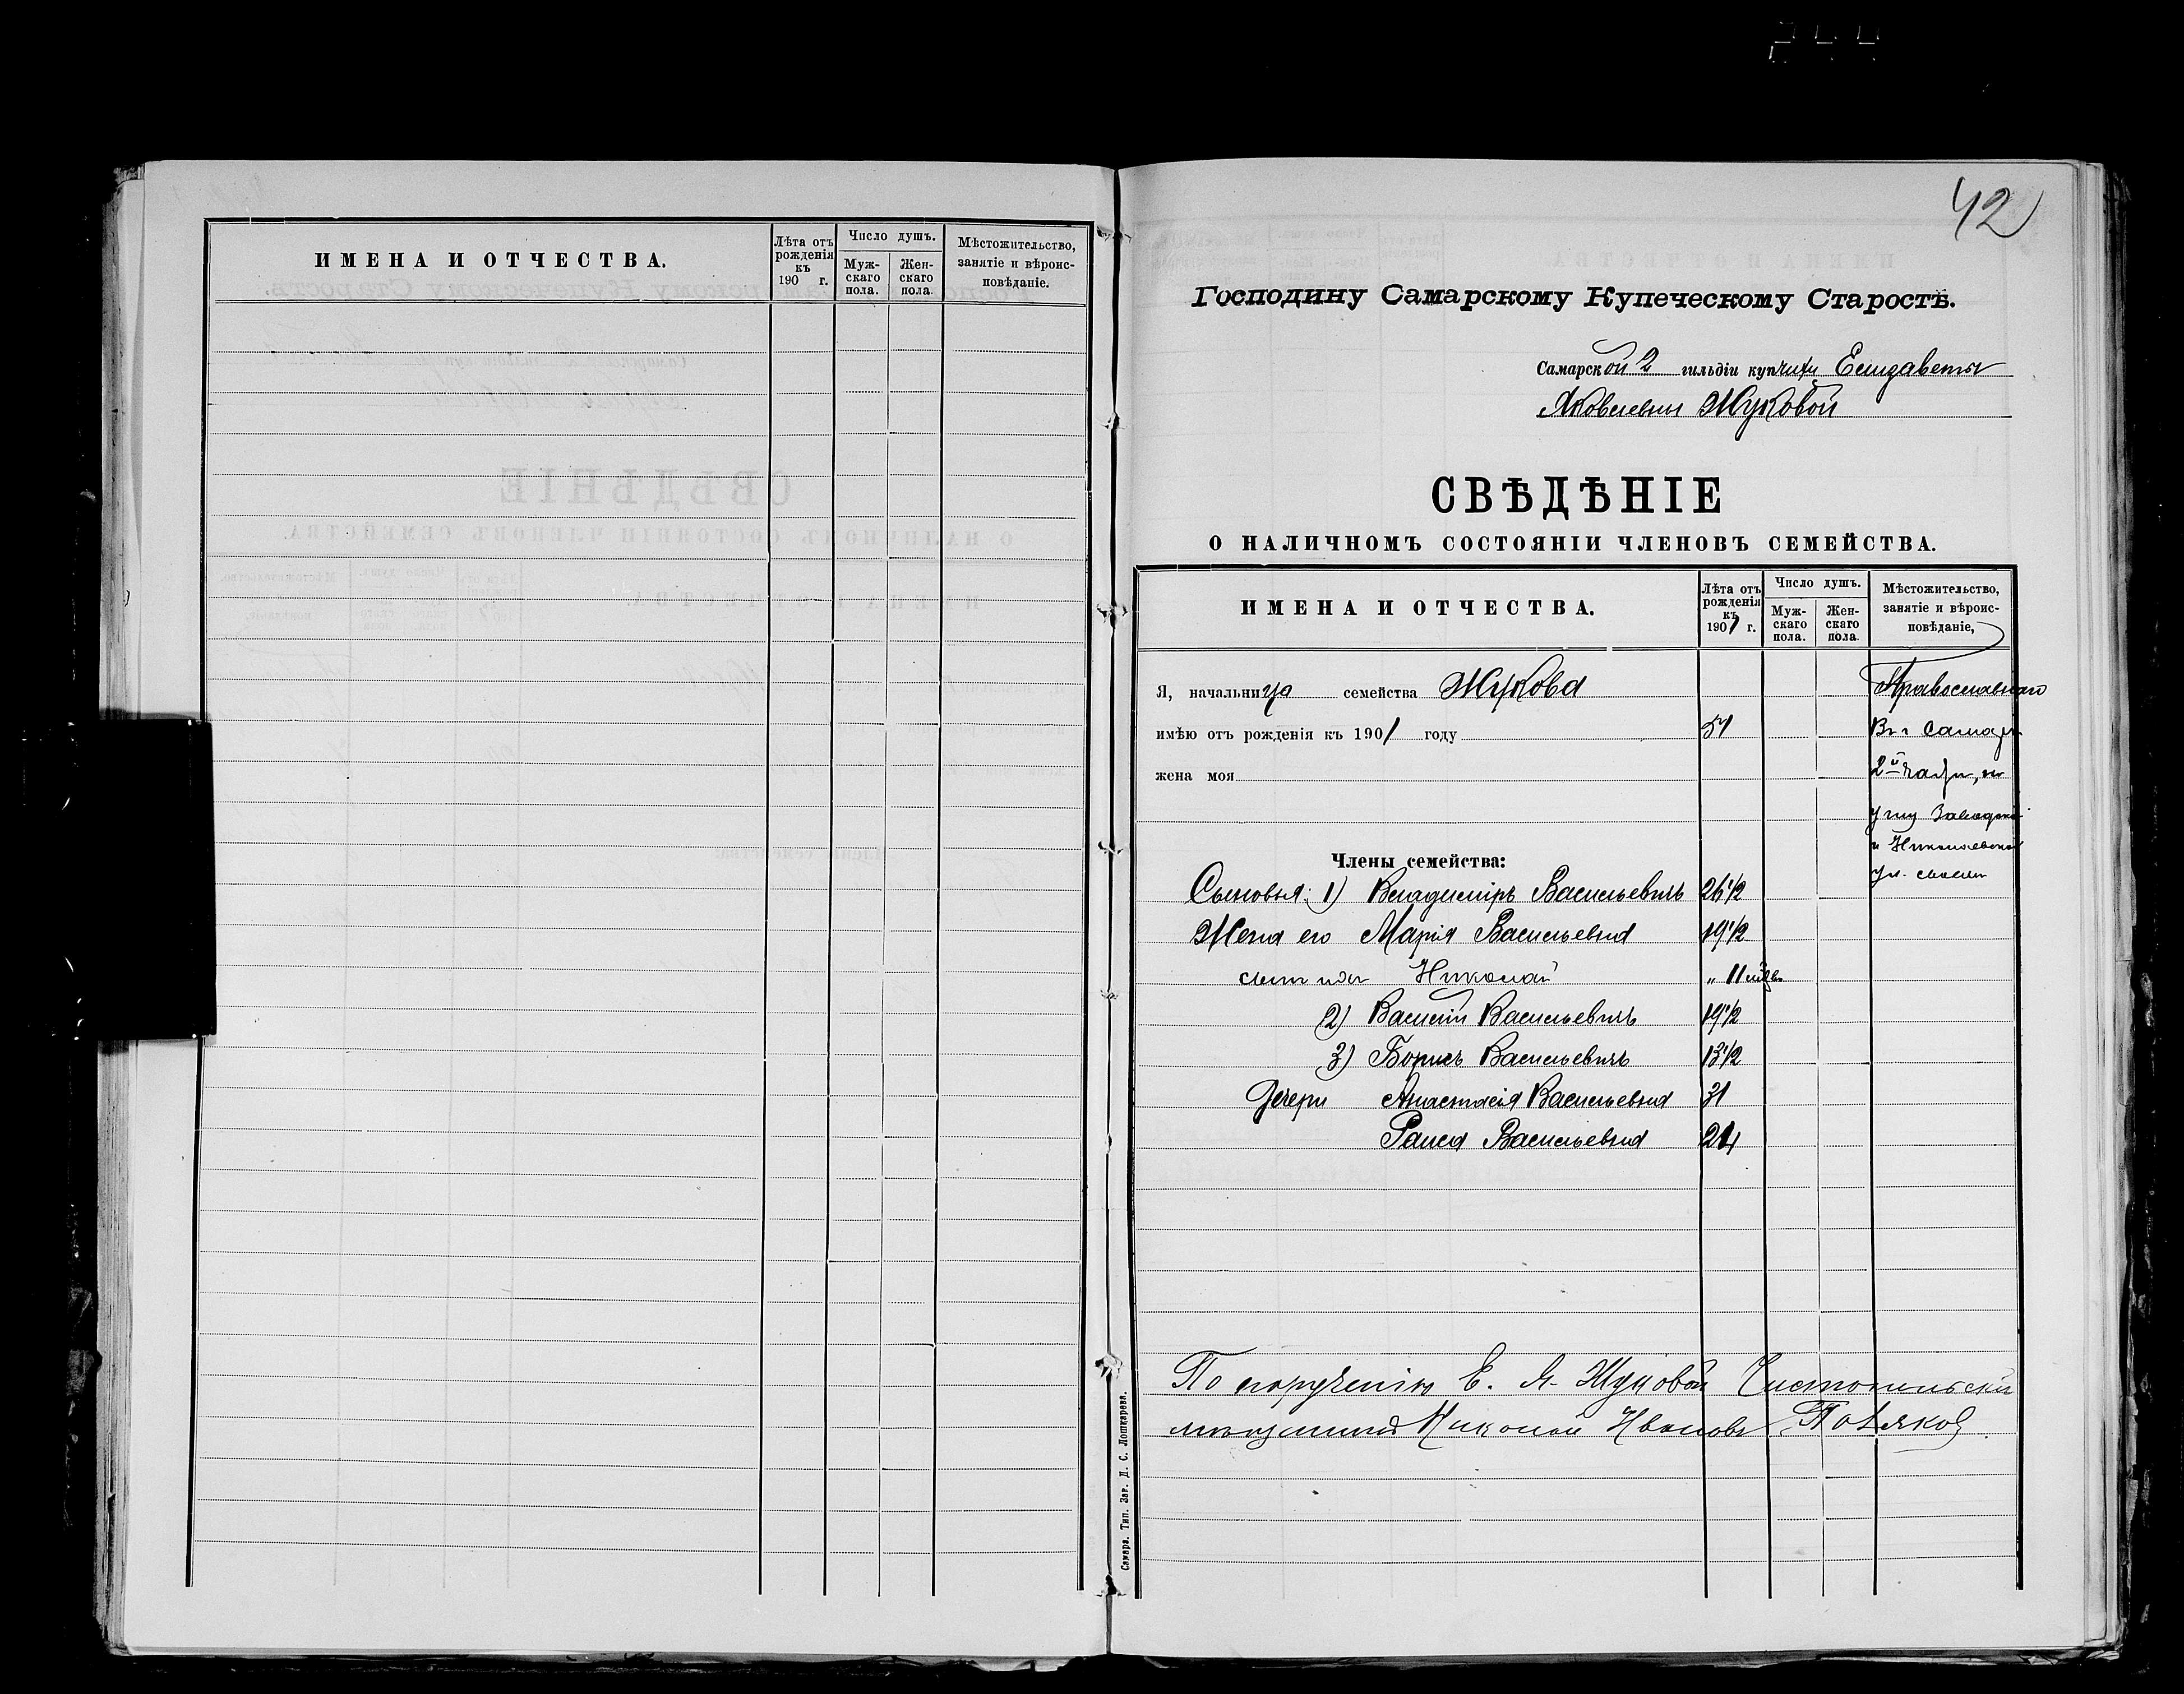 ИМЕНА И ОТЧЕСТВА.
Лѣта отъ рожденія къ 190 г.
Число душъ.
Мужскаго пола.
Женскаго пола.
Мѣстожительство, занятіе и вѣроисповѣданіе.
42
Господину Самарскому Купеческому Старостѣ.
Самарской 2 гильдіи купчихи Елизаветы
Яковлевны Жуковой
СВѢДѢНІЕ
О НАЛИЧНОМЪ СОСТОЯНІИ ЧЛЕНОВЪ СЕМЕЙСТВА.
ИМЕНА И ОТЧЕСТВА.
Лѣта отъ рожденія къ 1901 г.
Число душъ.
Мужскаго пола.
Женскаго пола.
Мѣстожительство, занятіе и вѣроисповѣданіе,
Я, начальница семейства Жукова Православнаго
имѣю отъ рожденія къ 1901 году Въ г Самарѣ
жена моя 2й части, на
углу Заводской
и Николаевской
Члены семейства:
ул.
Сыновья: 1) Владиміръ Васильевичъ 26 1/2
Жена его Марія Васильевна 19 1/2
сынъ ихъ Николай " 11 мѣс
2) Василій Васильевичъ 19 1/2
3) Борисъ Васильевичъ 13 1/2
Дочери Анастасія Васильевна 31
Раиса Васильевна
По порученію Е. Я. Жуковой Чистопольскій
мѣщанинъ Николай Ивановъ Поляков
Самара. Тип. Зав. Д. С. Лошкарева.